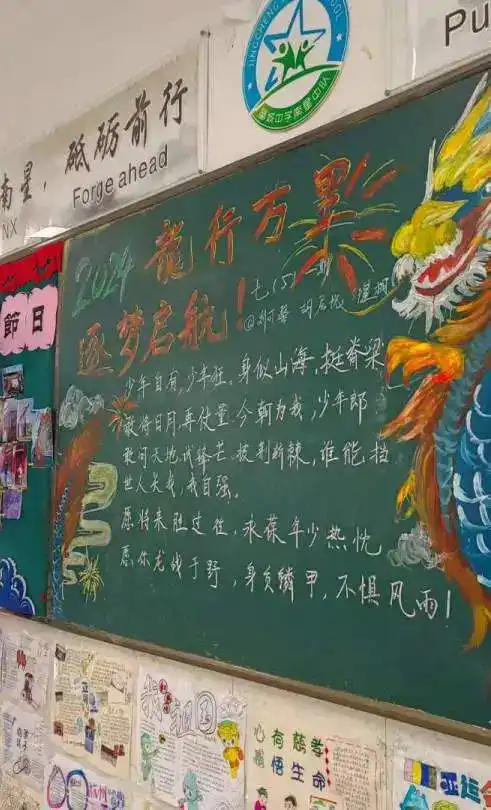 JINGCHENG
OOL
Pu
南星，砥砺前行
NX
Forge ahead
2024
龍行万里
逐梦启航！
七（5）一期
節日
少年自有，少年狂。身似山海，挺脊梁
敢将日月，再丈量 今朝为我，少年郎
敢问天地试锋芒 披荆斩棘，谁能挡
世人笑我，我自强。
愿将来胜过往，永葆年少热忱
愿你龙战于野，身负鳞甲，不惧风雨！
祖国
心有慈孝
感悟生命
亚运